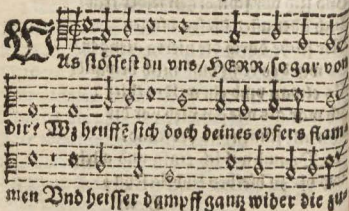 WAs stössest du vns/ HERR/ so gar von
dir? Wz heufft sich doch deines eyfers flam-
men Vnd heisser dampff gantz wider die zu-